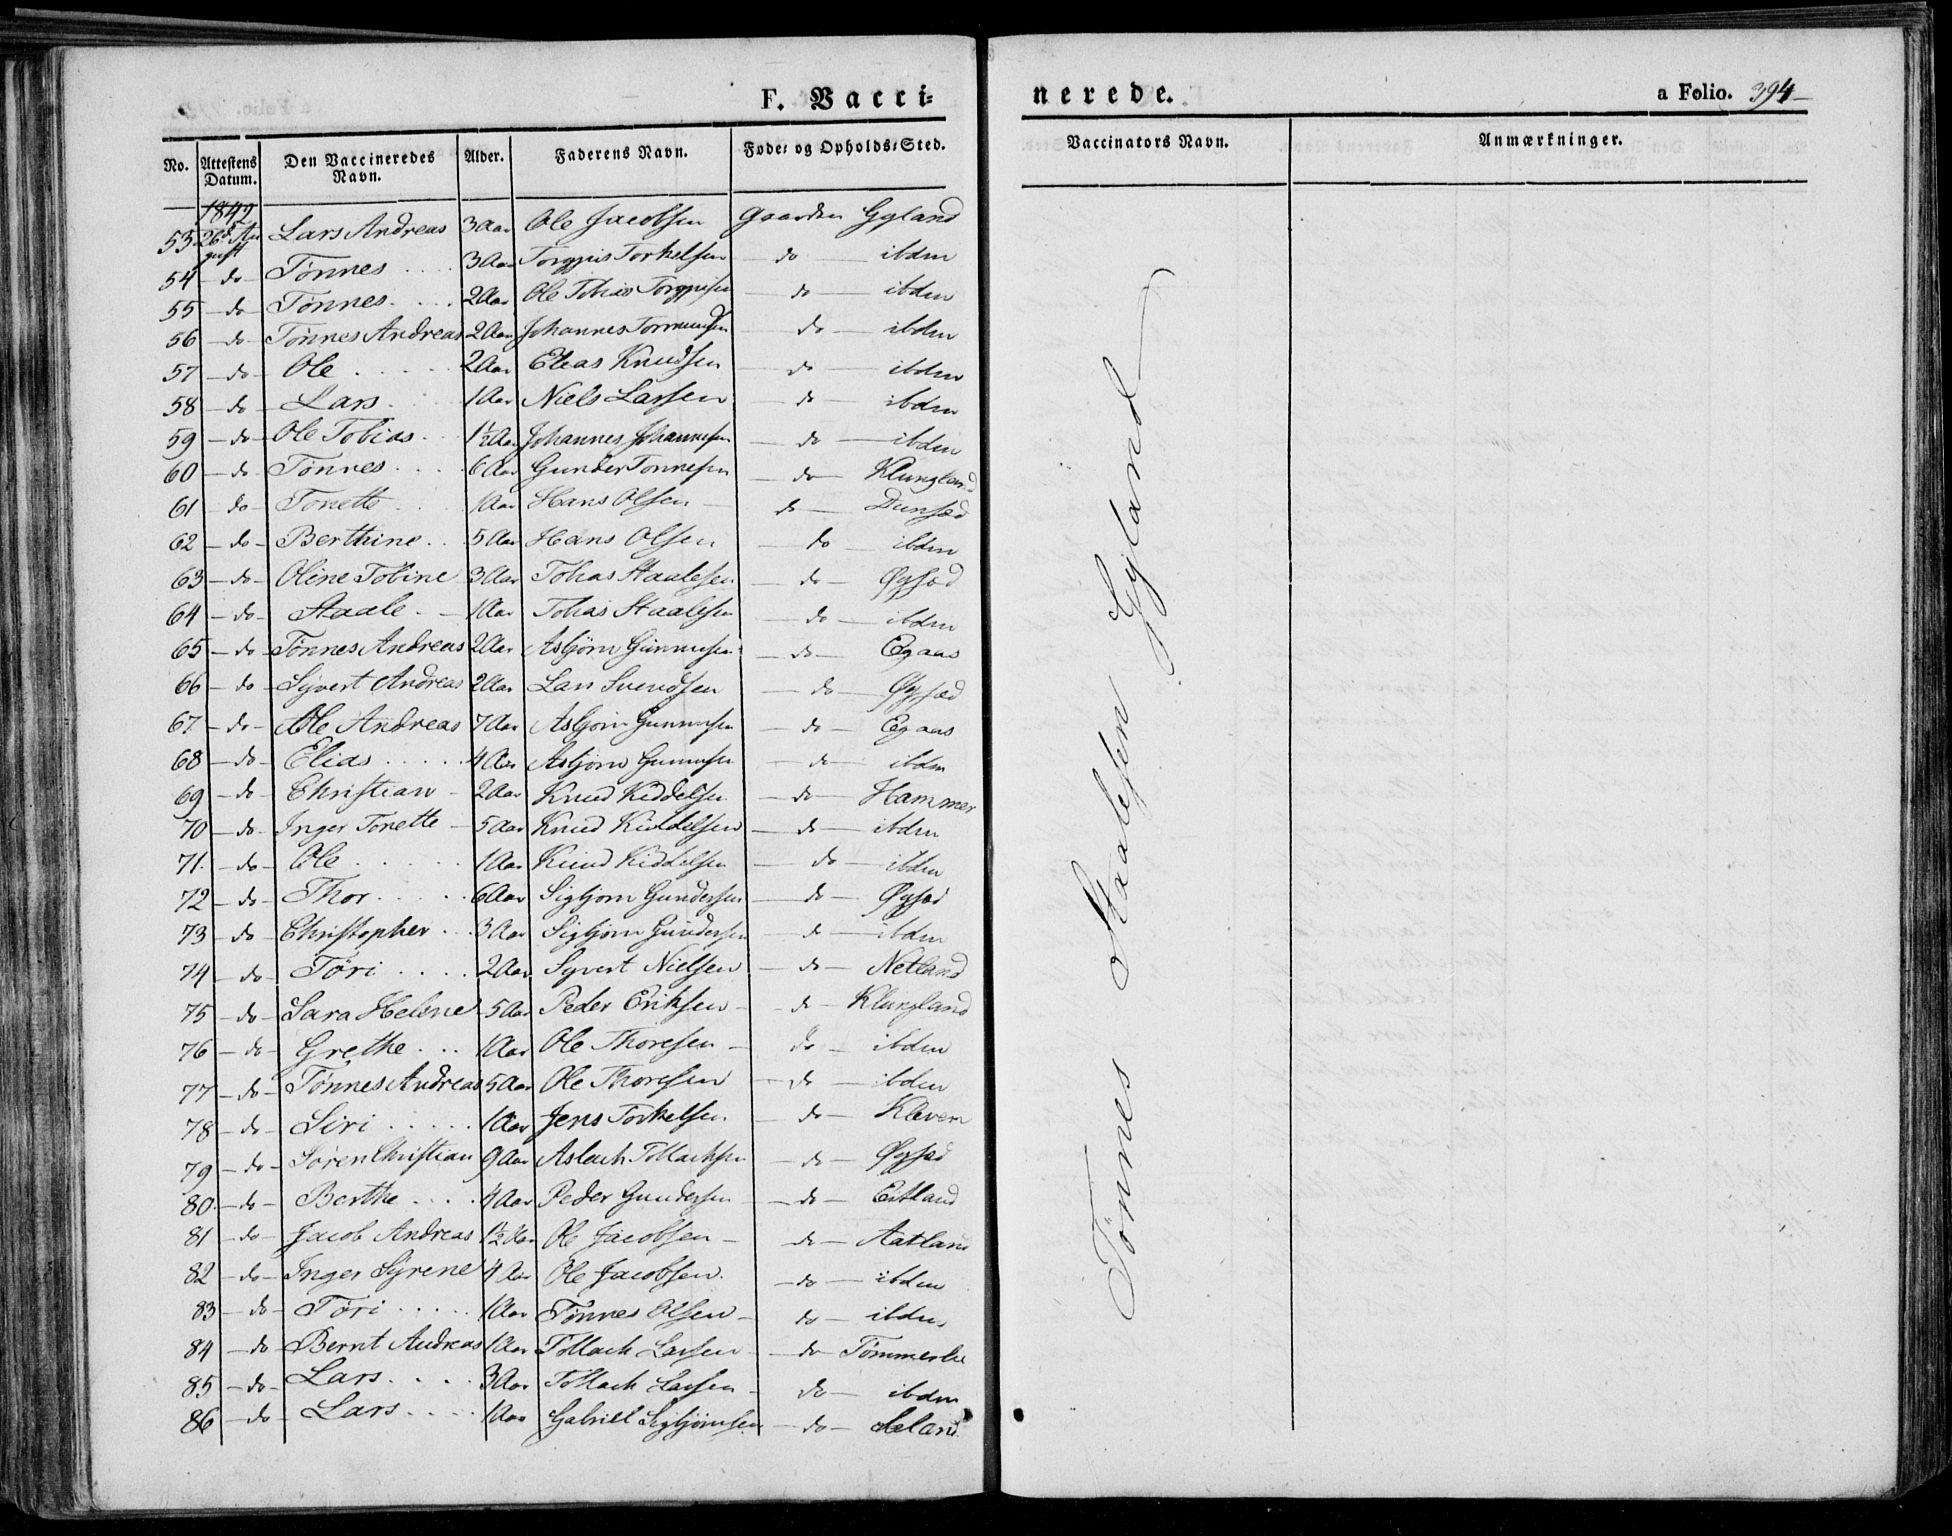 F. Vacci=
nerede.
a Folio. 394
No. Attestens Datum. Den Vaccineredes Navn. Alder. Faderens Navn. Føde= og Opholds=Sted. Vaccinators Navn. Anmærkninger.
1842
53 26d August Lars Andreas 3 Aar Ole Jacobsen Gaarden Gyland
54 do Tønnes 3 Aar Torgrius Torkelsen do ibden
55 do Tønnes 2 Aar Ole Tobias do ibden
56 do Tønnes Andreas 2 Aar Johannes do ibden
57 do Ole 2 Aar Elias Knudsen do ibden
58 do Lars 1 Aar Niels Larsen do ibden
59 do Ole Tobias 1½ Aar Johannes Johannesen do ibden
60 do Tønnes 6 Aar Gunder Tønnesen do Klungland
61 do Tonette 1 Aar Hans Olsen do Dunsæd
62 do Berthine 5 Aar Hans Olsen do ibden
63 do Oline Tobine 3 Aar Tobias Staalesen do Øysæd
64 do Staale 1 Aar Tobias Staalesen do ibden
65 do Tønnes Andreas 2 Aar Asbjörn Gunnusen do Egaas
66 do Syvert Andreas 2 Aar Lars Svendsen do Øysæd
67 do Ole Andreas 7 Aar Asbjörn Gunnusen do Egaas
68 do Elias 4 Aar Asbjörn Gunnusen do ibden
69 do Christian 2 Aar Knud Kiddelsen do Hammer
70 do Inger Tonette 5 Aar Knud Kiddelsen do ibden
71. do Ole 1 Aar Knud Kiddelsen do ibden
72 do Thor 6 Aar Sigbjørn Gundersen do Øysæd
73 do Christopher 3 Aar Sigbjørn Gundersen do ibden
74 do Töri 2 Aar Syvert Nielsen do Netland
75 do Sara Helene 5 Aar Peder Eriksen do Klungland
76 do Grethe 1 Aar Ole Thoresen do ibden
77 do Tønnes Andreas 5 Aar Ole Thoresen do ibden
78 do Siri 1 Aar Jens Torkelsen do Kleven
79 do Søren Christian 9 Aar Aslach Tollachsen do Øysæd
80 do Berthe 4 Aar Peder Gundersen do Eitland
81 do Jacob Andreas 1½ Aar Ole Jacobsen do Aatland
82 do Inger Syrene 4 Aar Ole Jacobsen do ibden
83 do Töri 1 Aar Tønnes Olsen do ibden
84 do Bernt Andreas 1 Aar Tollach Larsen do Tömmerlie
85 do Lars 3 Aar Tollach Larsen do ibden
86 do Lars 1 Aar Gabriel Sigbjørnsen do Seland
Tönnes Staalesen Gyland